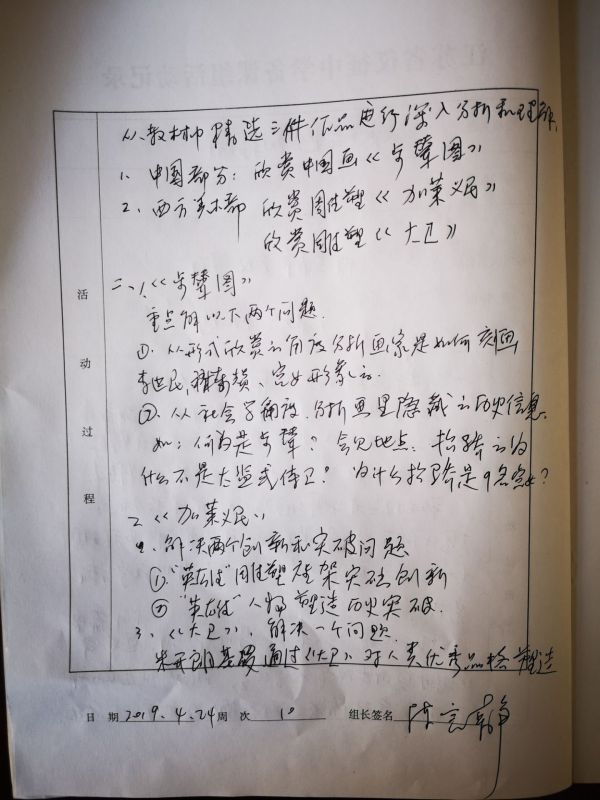 从教材中精选三件作品进行深入分析和理解.
1. 中国部分: 欣赏中国画《步辇图》
2. 西方美术部 欣赏雕塑《加莱义民》
欣赏雕塑《大卫》
二、1.《步辇图》
重点解以下两个问题.
①. 从形式欣赏之角度分析画家是如何刻画
李世民, 禄东赞、宫女形象之.
②. 从社会学角度, 分析画里隐藏之历史信息.
如: 何为是步辇? 会见地点. 抬辇之为
什么不是太监或侍卫? 为什么抬辇是9名宫女?
2《加莱义民》
解决两个创新和突破问题
①"英雄"雕塑 创新
②"英雄"人物塑造历史突破.
3.《大卫》, 解决一个问题.
米开朗基罗通过《大卫》对人类优秀品格塑造
活动过程
日 期 2019.4.24 周 次 10 组长签名 陈